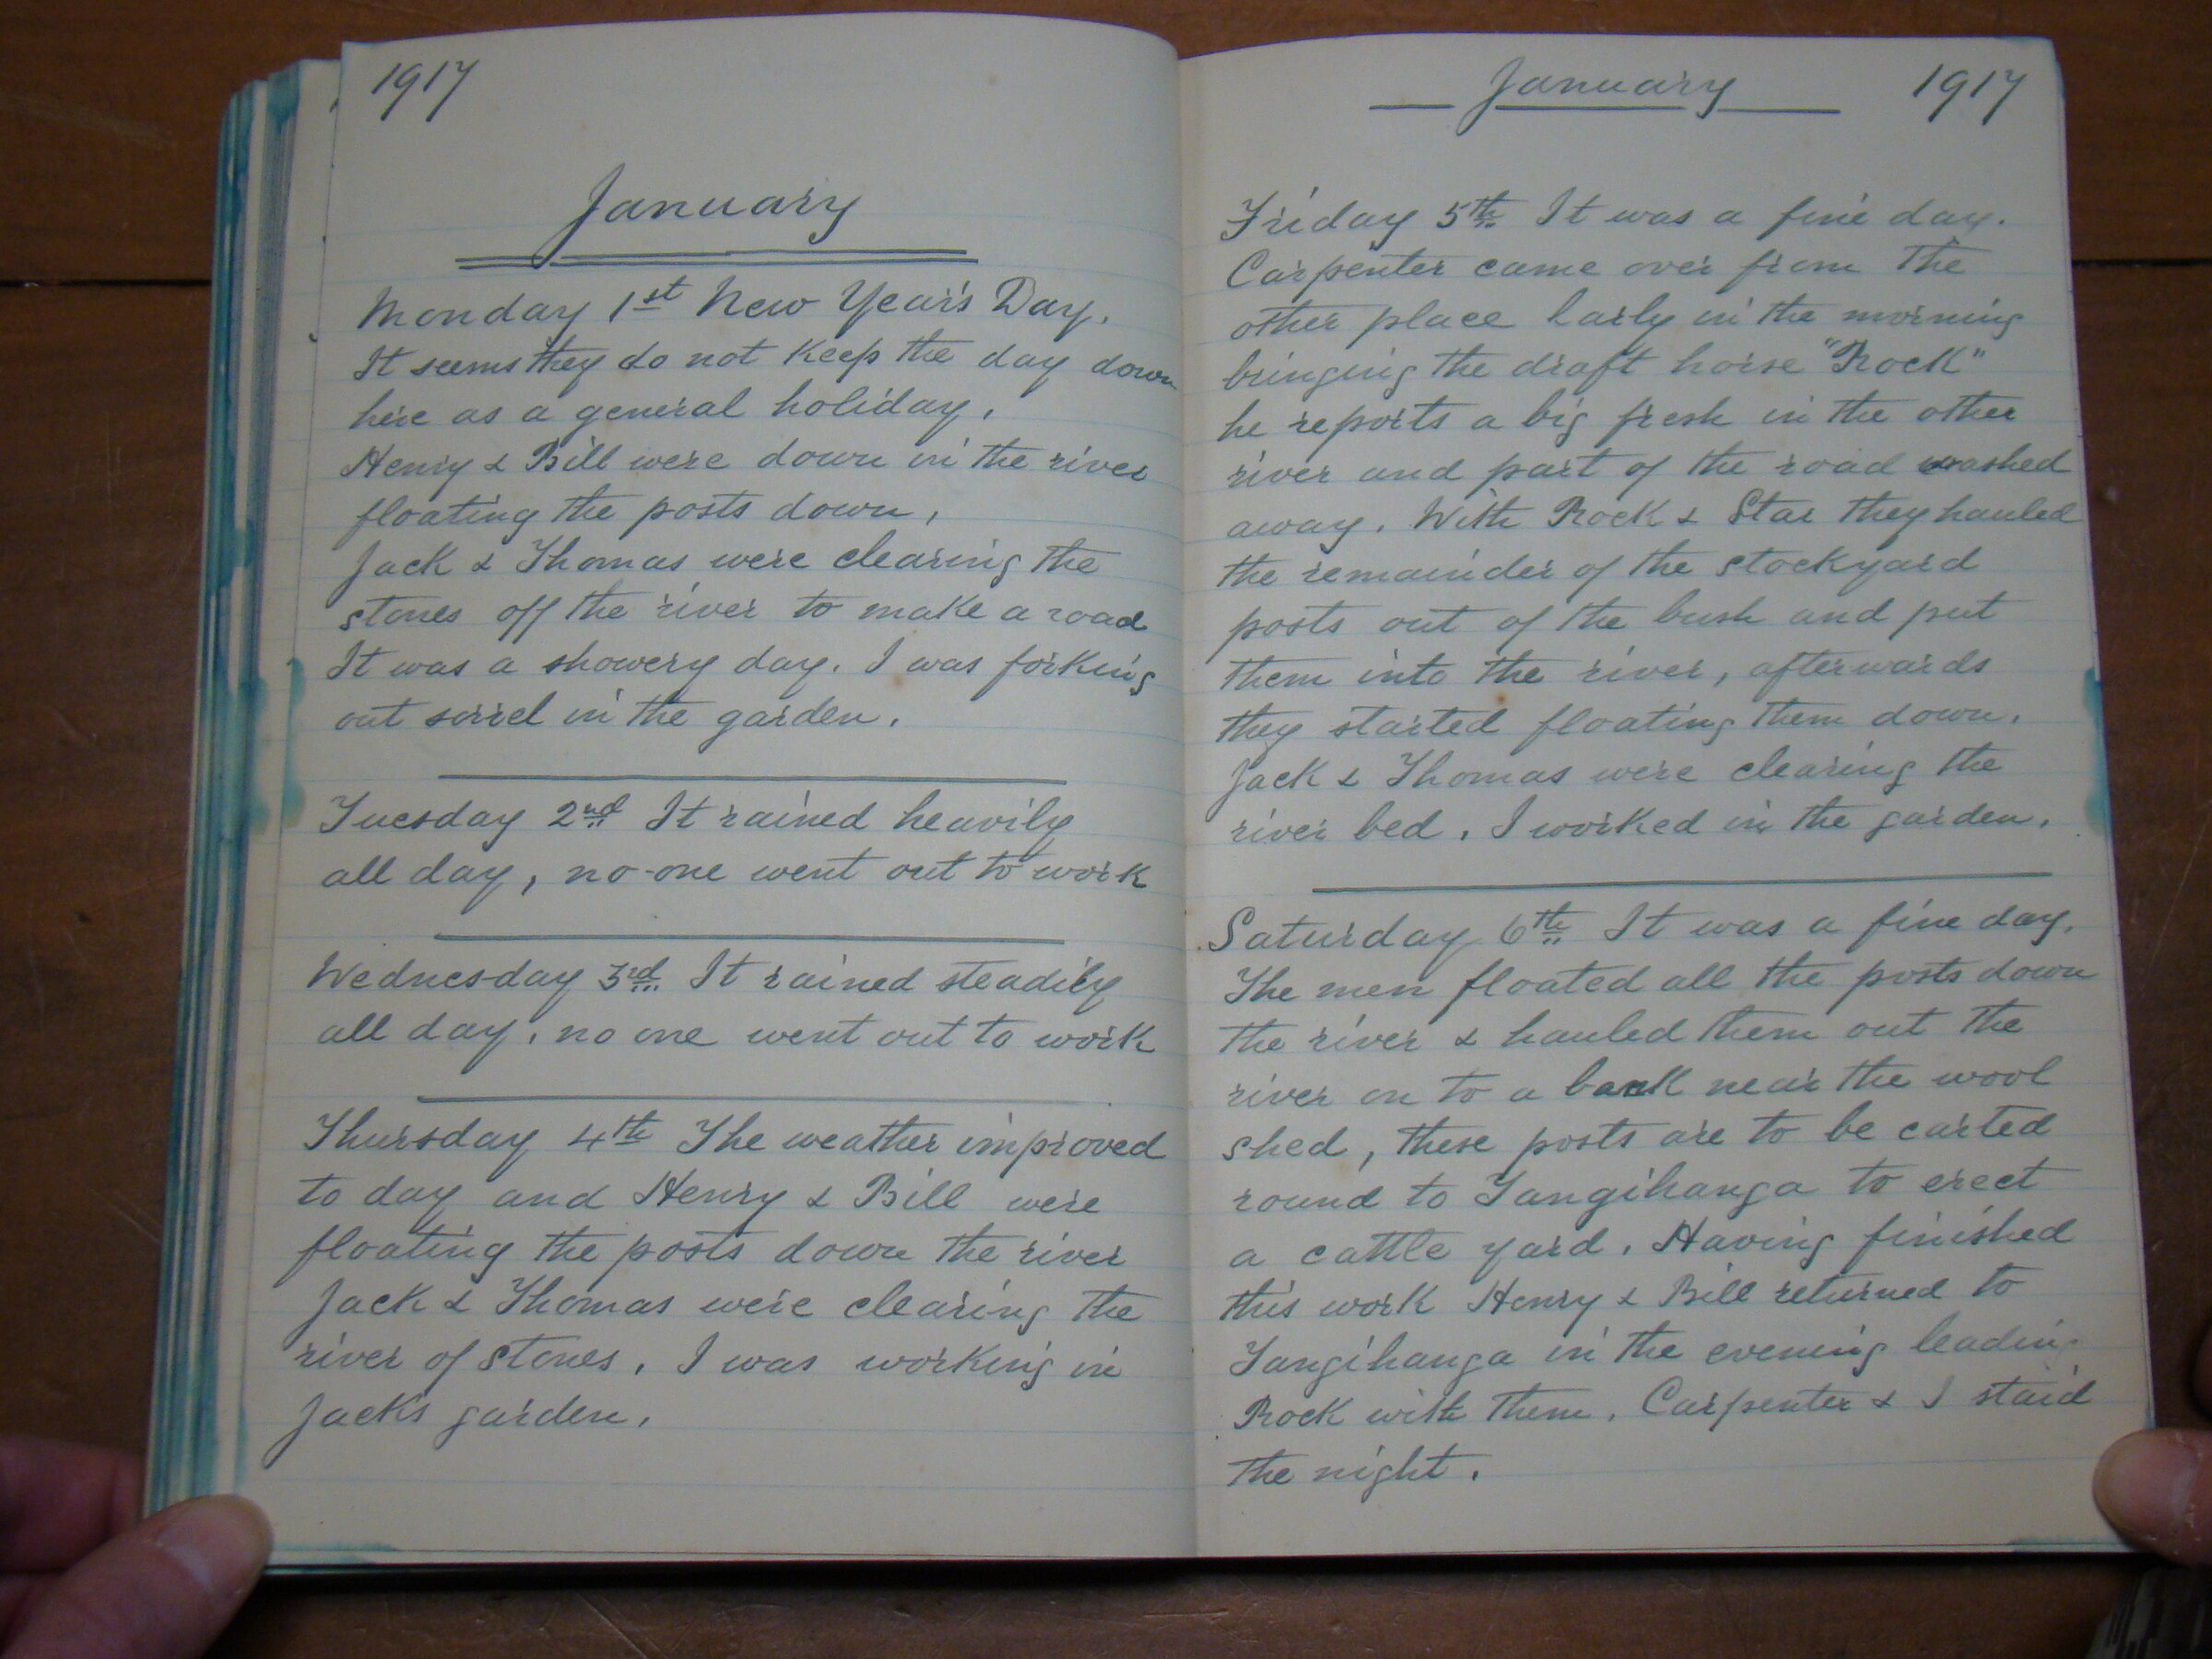 1917
January
Monday 1st New Year's Day.
It seems they do not keep the day down
here as a general holiday.
Henry & Bill were down in the river
floating the posts down,
Jack & Thomas were clearing the
stones off the river to make a road
It was a showery day. I was forking
out sorrel in the garden.
Tuesday 2nd It rained heavily
all day, no-one went out to work
Wednesday 3rd It rained steadily
all day, no one went out to work
Thursday 4th The weather improved
to day and Henry & Bill were
floating the posts down the river
Jack & Thomas were clearing the
river of stones. I was working in
Jacks garden.
January 1917
Friday 5th It was a fine day.
Carpenter came over from the
other place early in the morning
bringing the draft horse "Rock"
he reports a big fresh in the other
river and part of the road washed
away. With Rock & Star they hauled
the remainder of the stockyard
posts out of the bush and put
them into the river, afterwards
they started floating them down.
Jack & Thomas were clearing the
river bed. I worked in the garden.
Saturday 6th It was a fine day.
The men floated all the posts down
the river & hauled them out the
river on to a bank near the wool
shed, these posts are to be carted
round to Tangihanga to erect
a cattle yard. Having finished
this work Henry & Bill returned to
Tangihanga in the evening leading
Rock with them. Carpenter & I staid
the night.